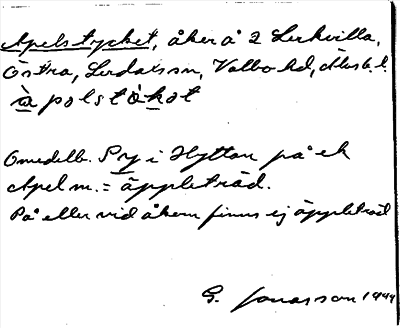 Apelstycket, åker å 2 Lerkvilla,
Östra, Lerdalssn, Valbo hd, Älvsb. l.
à polstòkət
Omedelb. S p y i Hyttan på ek
Apel m. = äppleträd.
På eller vid åkern finns ej äppleträd
G. Jonasson 1949